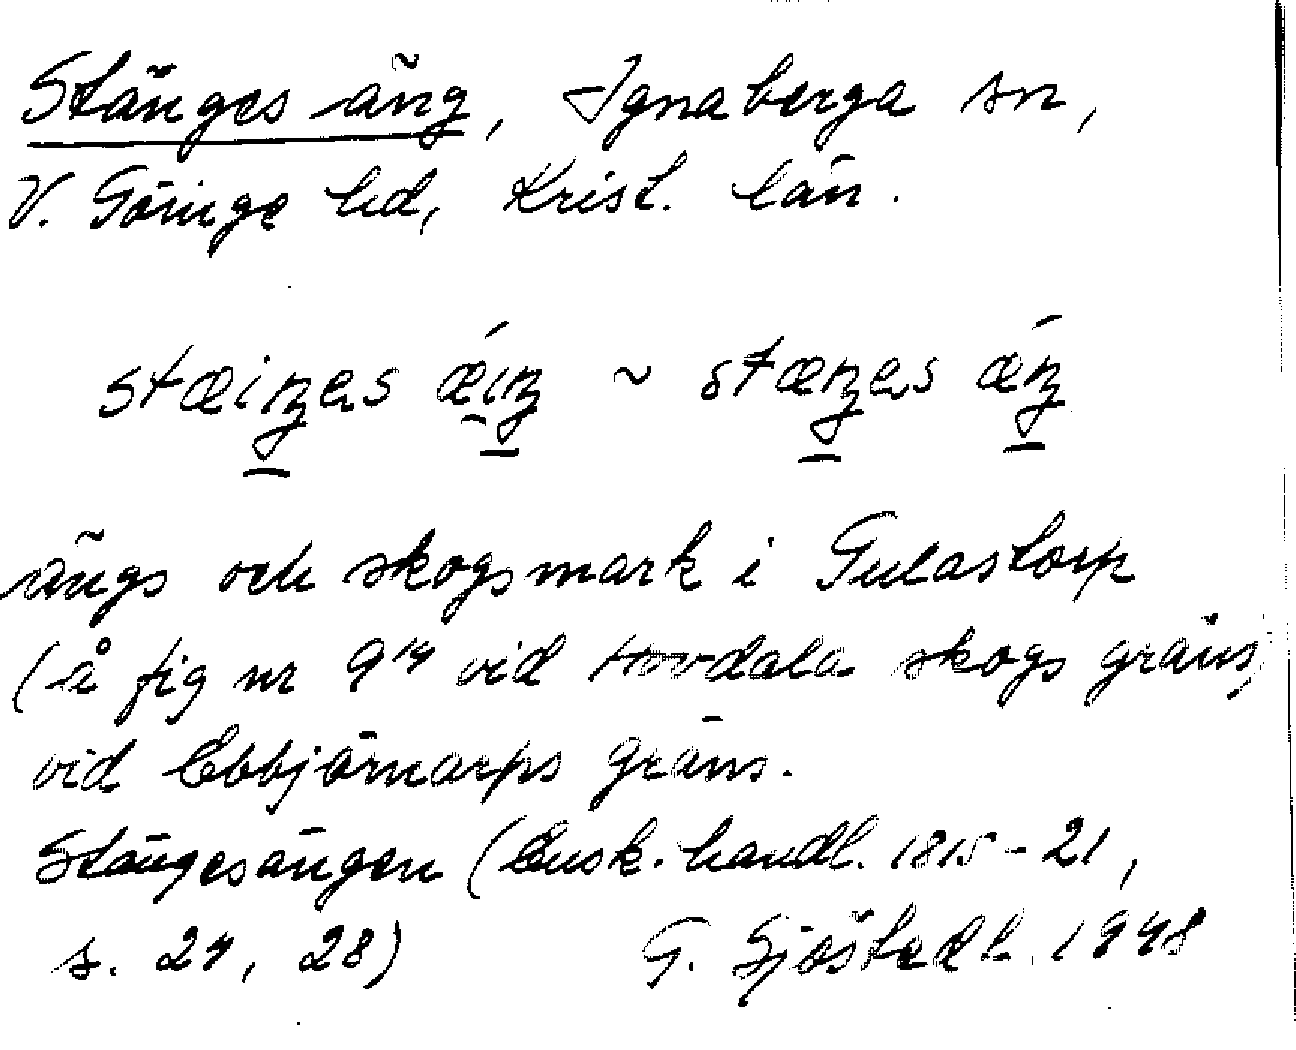 Stänges äng, Ignaberga sn,
V. Göinge hd, Krist. län.
stæiŋəs ǽiŋ ~ stæŋəs ǽŋ
ängs och skogsmark i Gulastorp
(å fig nr 914 vid Hovdala skogs gräns,
vid Ebbjörnarps gräns.
Stängesängen (Ensk. handl. 1815-21,
s. 24, 28) G. Sjöstedt. 1948